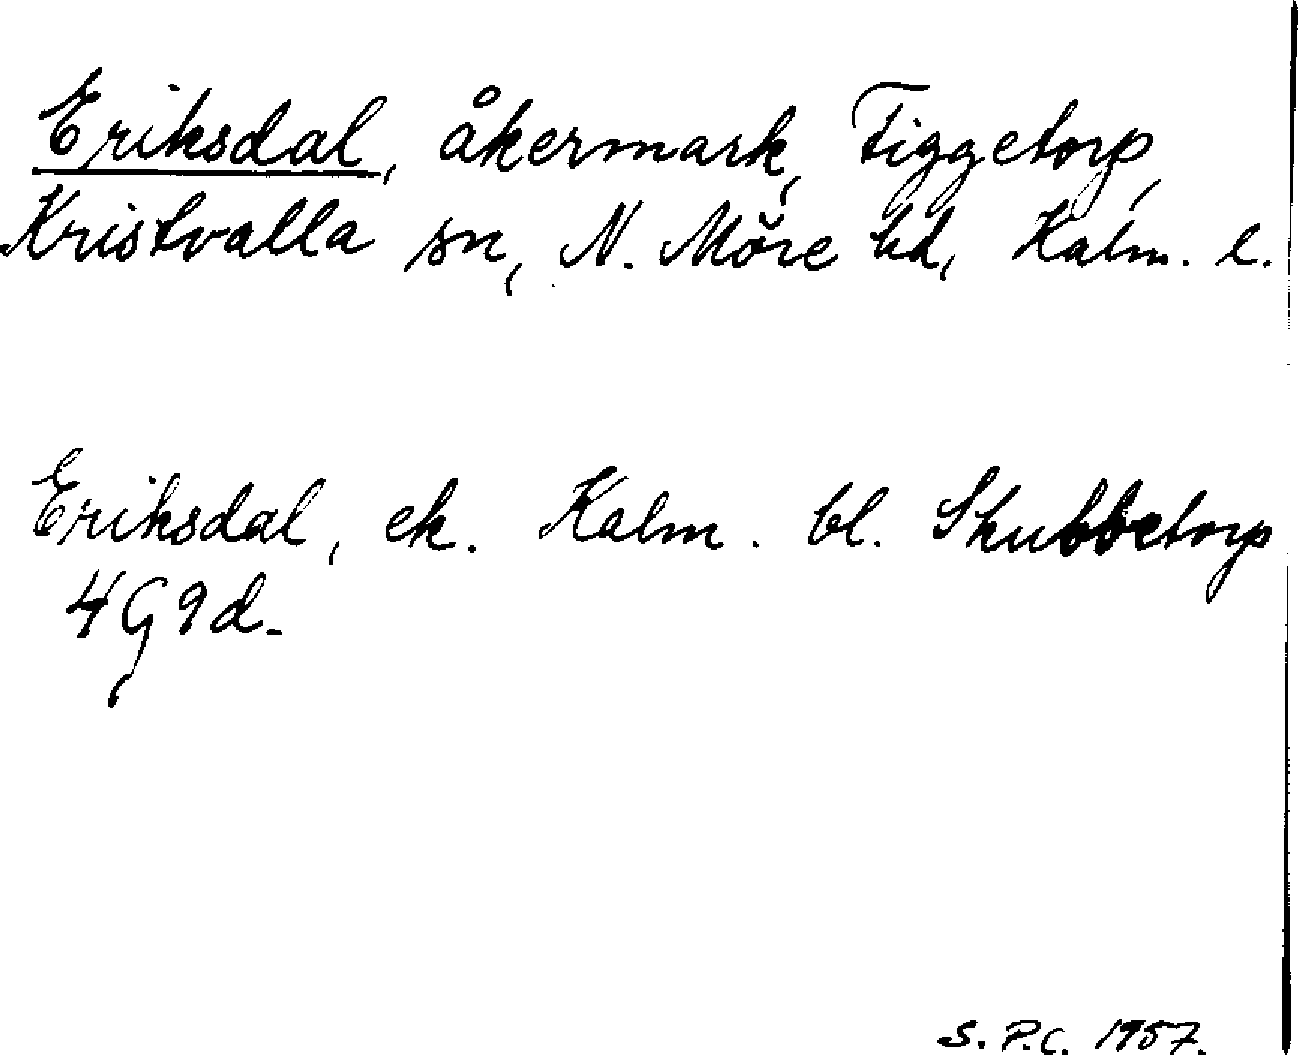 Eriksdal, åkermark, Tiggetorp,
Kristvalla sn, N. Möre hd, Kalm. l.
Eriksdal, ek. Kalm. bl. Skubbetorp
4G9d.
S.P.C. 1957.